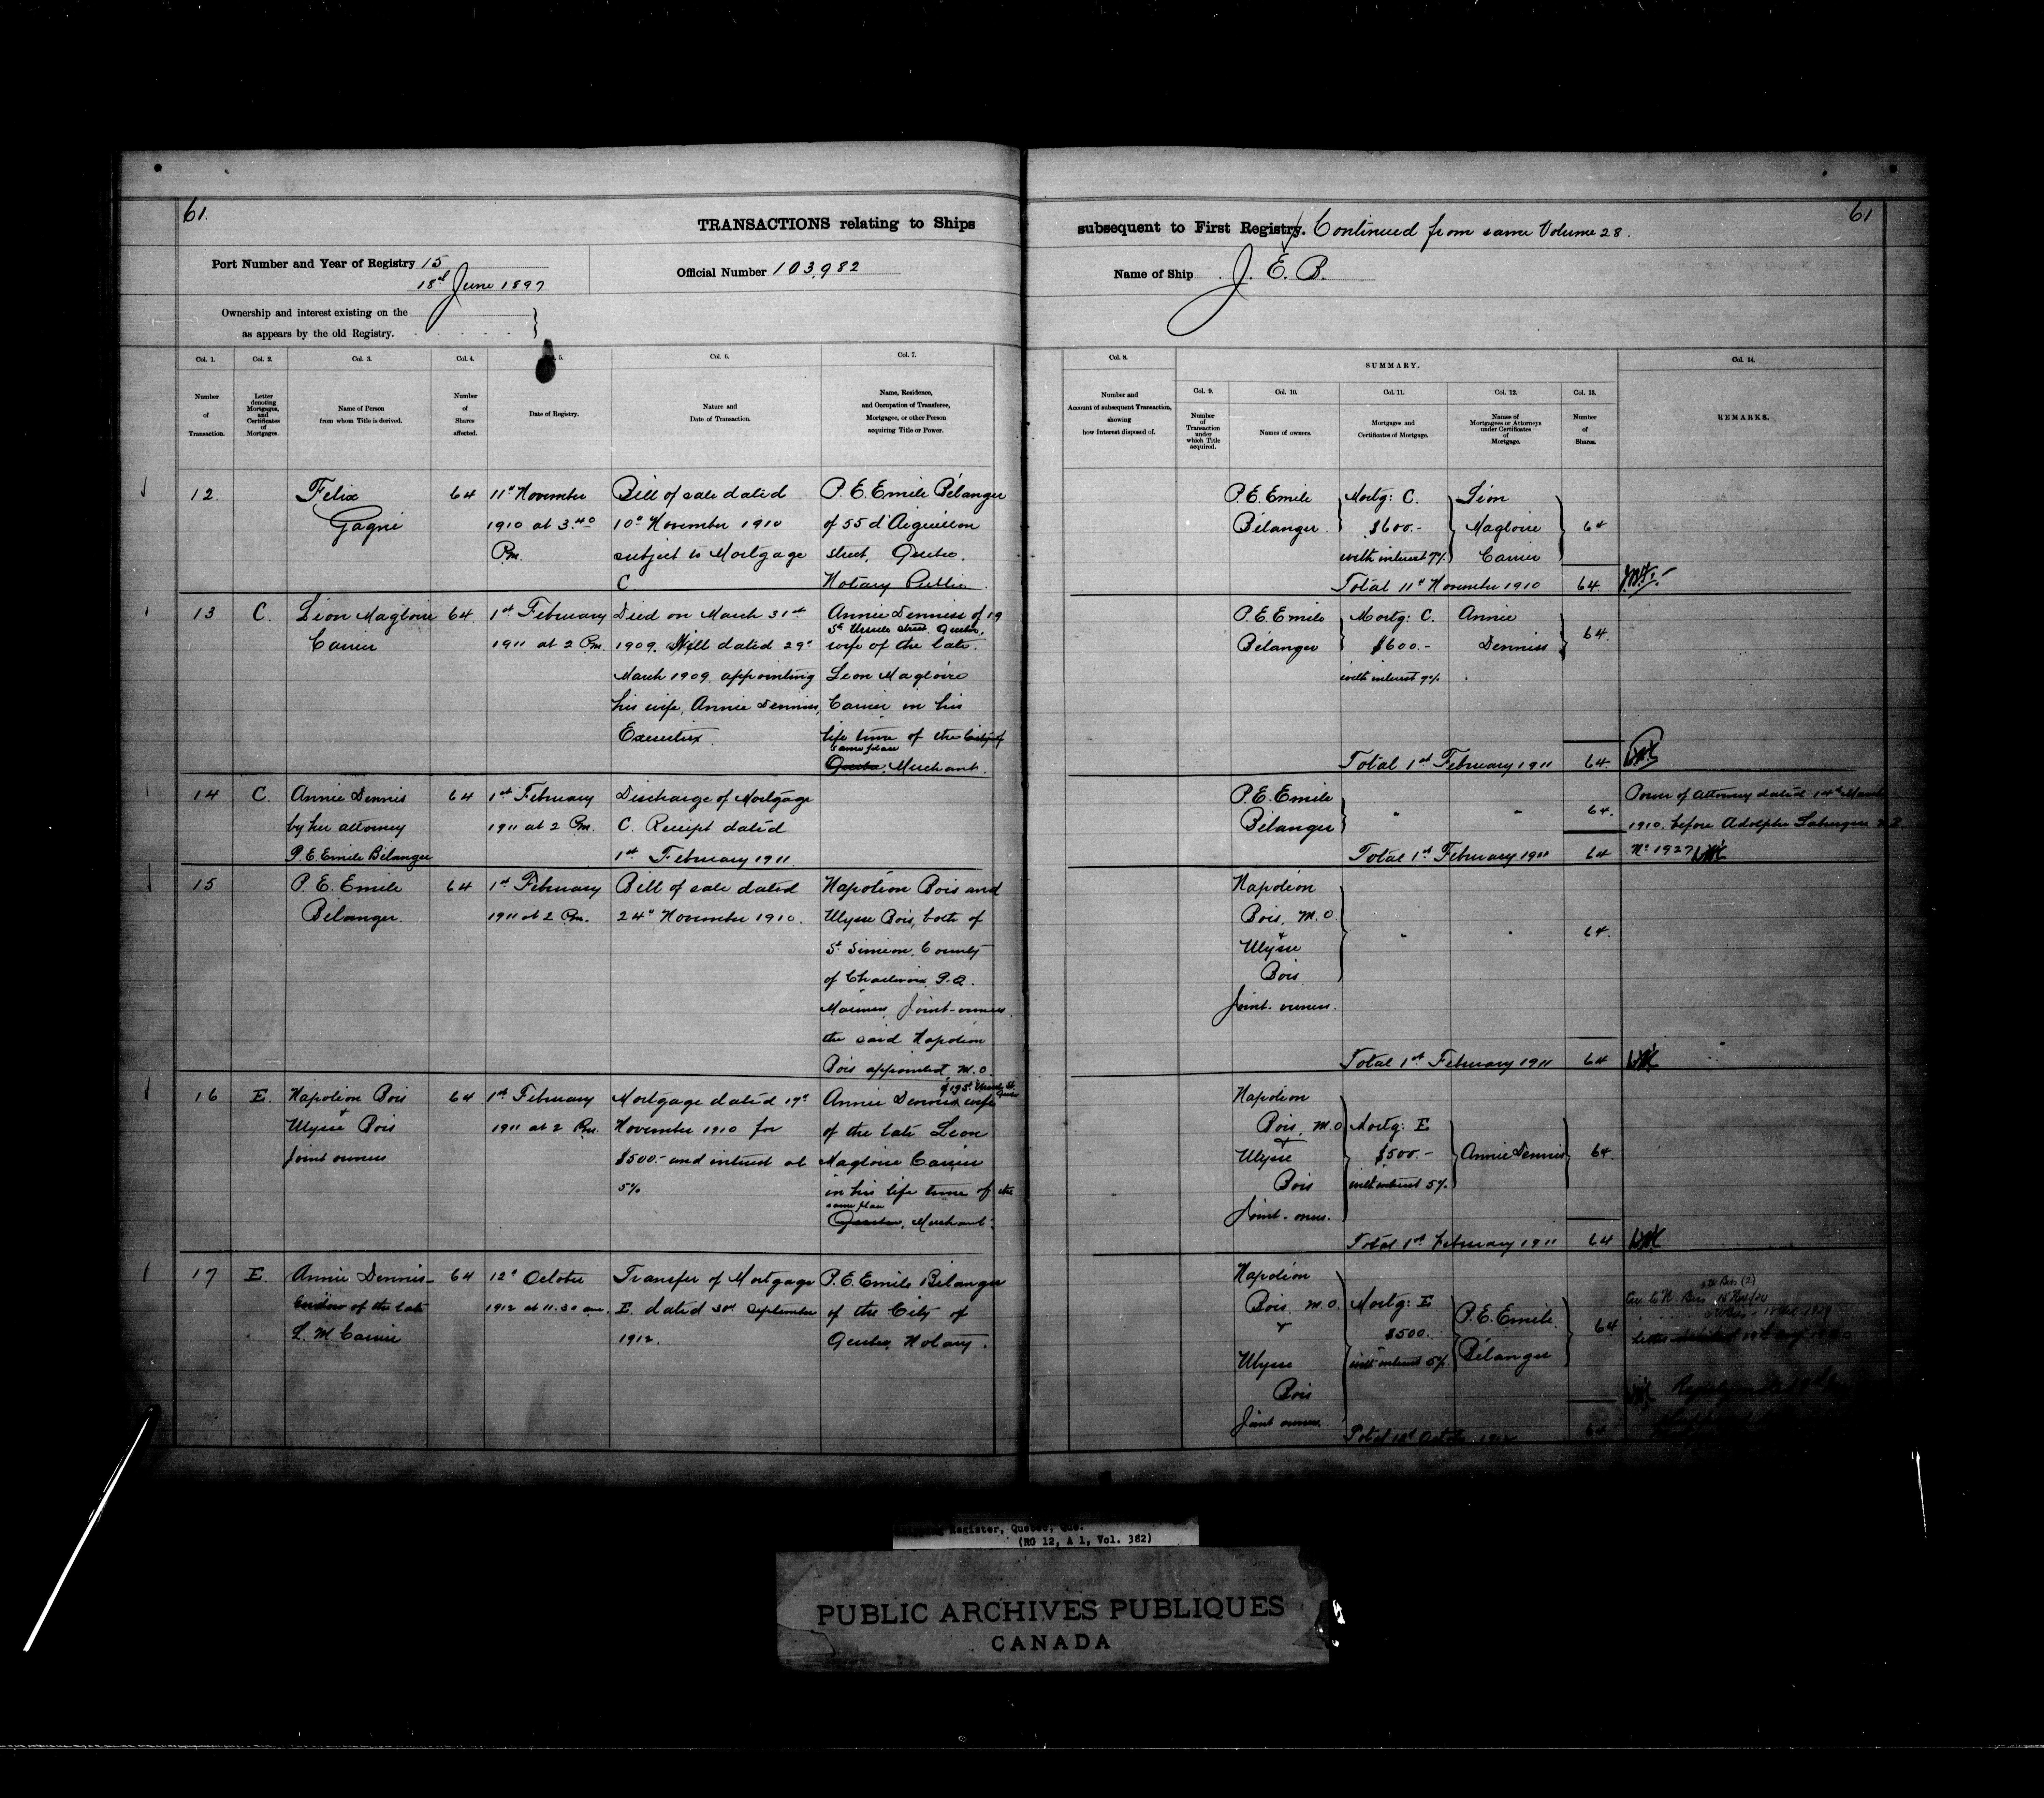 61.
TRANSACTIONS relating to Ships
Port Number and Year of Registry 15
18th June 1897
Official Number 103,982
Ownership and interest existing on the
as appears by the old Registry.
Col. 1.
Number
of
Transaction.
Col. 2.
Letter
denoting
Mortgages,
and
Certificates
of
Mortgages.
Col. 3.
Name of Person
from whom Title is derived.
Col. 4.
Number
of
Shares
affected.
5.
Date of Registry.
Col. 6.
Nature and
Date of Transaction.
Col. 7.
Name, Residence,
and Occupation of Transferee,
Mortgagee, or other Person
acquiring Title or Power.
12.
Felix
Gagné
64
11th November
1910 at 3.40
P.m.
Bill of sale dated
10th November 1910
subject to Mortgage
C
P. E. Emile Bélanger
of 55 d'Aiguillon
street, Quebec.
Notary Public.
13
C.
Léon Magloire
Carrier
64.
1st February
1911 at 2 P.m.
Died on March 31st
1909. Will dated 29th
March 1909 appointing
his wife, Annie Dennis,
Executrix.
Annie Dennis of 19
St Ursule street Quebec,
wife of the late
Leon Magloire
Carrier in his
life time of the City of
same place
Quebec, Merchant.
14
C.
Annie Dennis
by her attorney
P. E. Emile Bélanger
64
1st February
1911 at 2 P.m.
Discharge of Mortgage
C. Receipt dated
1st February 1911
15
P. E. Emile
Bélanger.
64
1st February
1911 at 2 P.m.
Bill of sale dated
24th November 1910.
Napoléon Bois and
Ulysse Bois, both of
St Simeon, County
of Charlevoix P.Q.
Mariners, Joint-owners
the said Napoléon
Bois appointed M.O.
16
E.
Napoléon Bois
+
Ulysse Bois
Joint owners
64
1st February
1911 at 2 P.m.
Mortgage dated 19th
November 1910 for
$500.- and interest at
5%
of 19 St Ursule St.
Quebec
Annie Dennis wife
of the late Leon
Magloire Carrier
in his life time of the
same place
Quebec, Merchant.
17
E.
Annie Dennis
widow of the late
L. M. Carrier
64
12th October
1912 at 11.30 am.
Transfer of Mortgage
E. dated 30th September
1912.
P. E. Emile Bélanger
of the City of
Quebec, Notary.
subsequent to First Registry. Continued from same Volume 28.
61
Name of Ship J. E. B.
Col. 8.
Number and
Account of subsequent Transaction,
showing
how Interest disposed of.
SUMMARY.
Col. 9.
Number
of
Transaction
under
which Title
acquired.
Col. 10.
Names of owners.
Col. 11.
Mortgages and
Certificates of Mortgage.
Col. 12.
Names of
Mortgagees or Attorneys
under Certificates
of
Mortgage.
Col. 13.
Number
of
Shares.
Col. 14.
REMARKS.
P. E. Emile
Bélanger
Mortg: C.
$600.-
with interest 7%
Léon
Magloire
Carrier
64
Total 11th November 1910
64.
P. E. Emile
Bélanger
Mortg: C.
$600.-
with interest 7%
Annie
Dennis
64.
Total 1st February 1911
64.
P. E. Emile
Bélanger
"
"
64.
Total 1st February 1911
64
Power of Attorney dated 14th March
1910. before Adolphe
No 1927
Napoléon
Bois, M.O.
+
Ulysse
Bois
Joint-owners.
"
"
64.
Total 1st February 1911
64
Napoléon
Bois, M.O.
+
Ulysse
Bois
Joint-owners.
Mortg: E
$500.-
with interest 5%
Annie Dennis
64.
Total 1st February 1911
64
Napoléon
Bois, M.O.
+
Ulysse
Bois
Joint owners.
Mortg: E
$500.
with interest 5%
P. E. Emile
Bélanger
64
Total 12th October 1912
64
Register, Quebec, Que.
(RG 12, A 1, Vol. 382)
PUBLIC ARCHIVES PUBLIQUES
CANADA